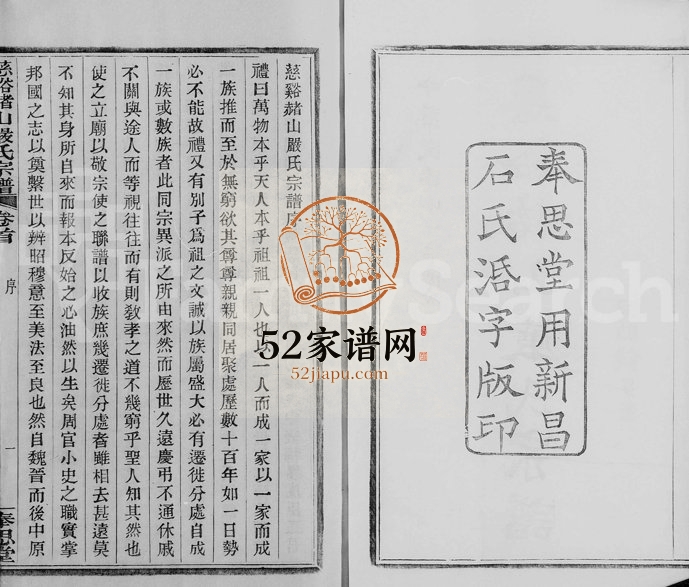 奉思堂用新昌
石氏活字版印
慈谿赭山嚴氏宗譜序
禮曰萬物本乎天人本乎祖祖一人也以一人而成一家以一家而成
一族推而至於無窮欲其尊尊親親同居聚處歷數十百年如一日勢
必不能故禮又有別子爲祖之文誠以族屬盛大必有遷徙分處自成
一族或數族者此同宗異派之所由來然而歷世久遠慶弔不通休戚
不關與途人而等視往往而有則敎孝之道不幾窮乎聖人知其然也
使之立廟以敬宗使之聯譜以收族庶幾遷徙分處者雖相去甚遠莫
不知其身所自來而報本反始之心油然以生矣周官小史之職實掌
邦國之志以奠繫世以辨昭穆意至美法至良也然自魏晉而後中原
慈谿赭山嚴氏宗譜
卷首
序
一
奉思堂
52家谱网
52jiapu.com
Search